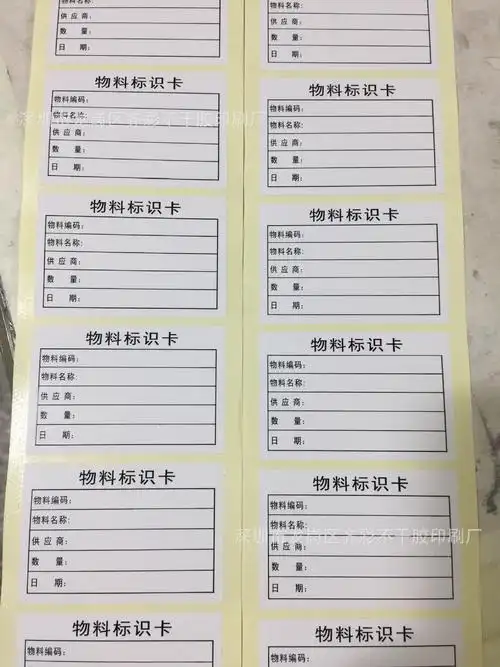 物料名称:
供 应 商:
数 量:
日 期:
物料名称:
供 应 商:
数 量:
日 期:
物料标识卡
物料编码:
物料名称:
供 应 商:
数 量:
日 期:
物料标识卡
物料编码:
物料名称:
供 应 商:
数 量:
日 期:
物料标识卡
物料编码:
物料名称:
供 应 商:
数 量:
日 期:
物料标识卡
物料编码:
物料名称:
供 应 商:
数 量:
日 期:
物料标识卡
物料编码:
物料名称:
供 应 商:
数 量:
日 期:
物料标识卡
物料编码:
物料名称:
供 应 商:
数 量:
日 期:
物料标识卡
物料编码:
物料名称:
供 应 商:
数 量:
日 期:
物料标识卡
物料编码:
物料名称:
供 应 商:
数 量:
日 期:
物料标识卡
物料编码:
物料标识卡
物料编码:
深圳市龙岗区齐彩不干胶印刷厂
深圳市龙岗区齐彩不干胶印刷厂